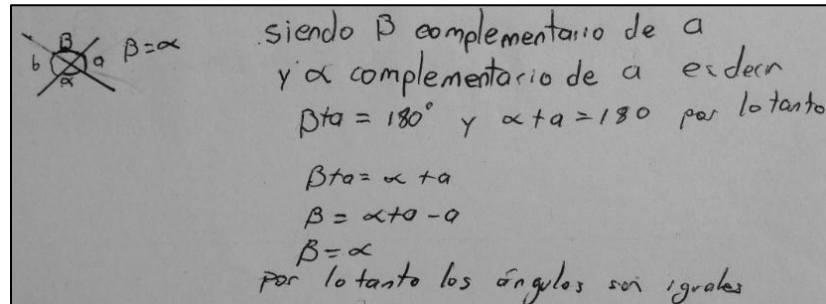 β
b a
α
β=α
siendo β complementario de a
y α complementario de a es decir
β+a = 180° y α+a=180 por lo tanto
β+a= α+a
β= α+a-a
β=α
por lo tanto los ángulos son iguales